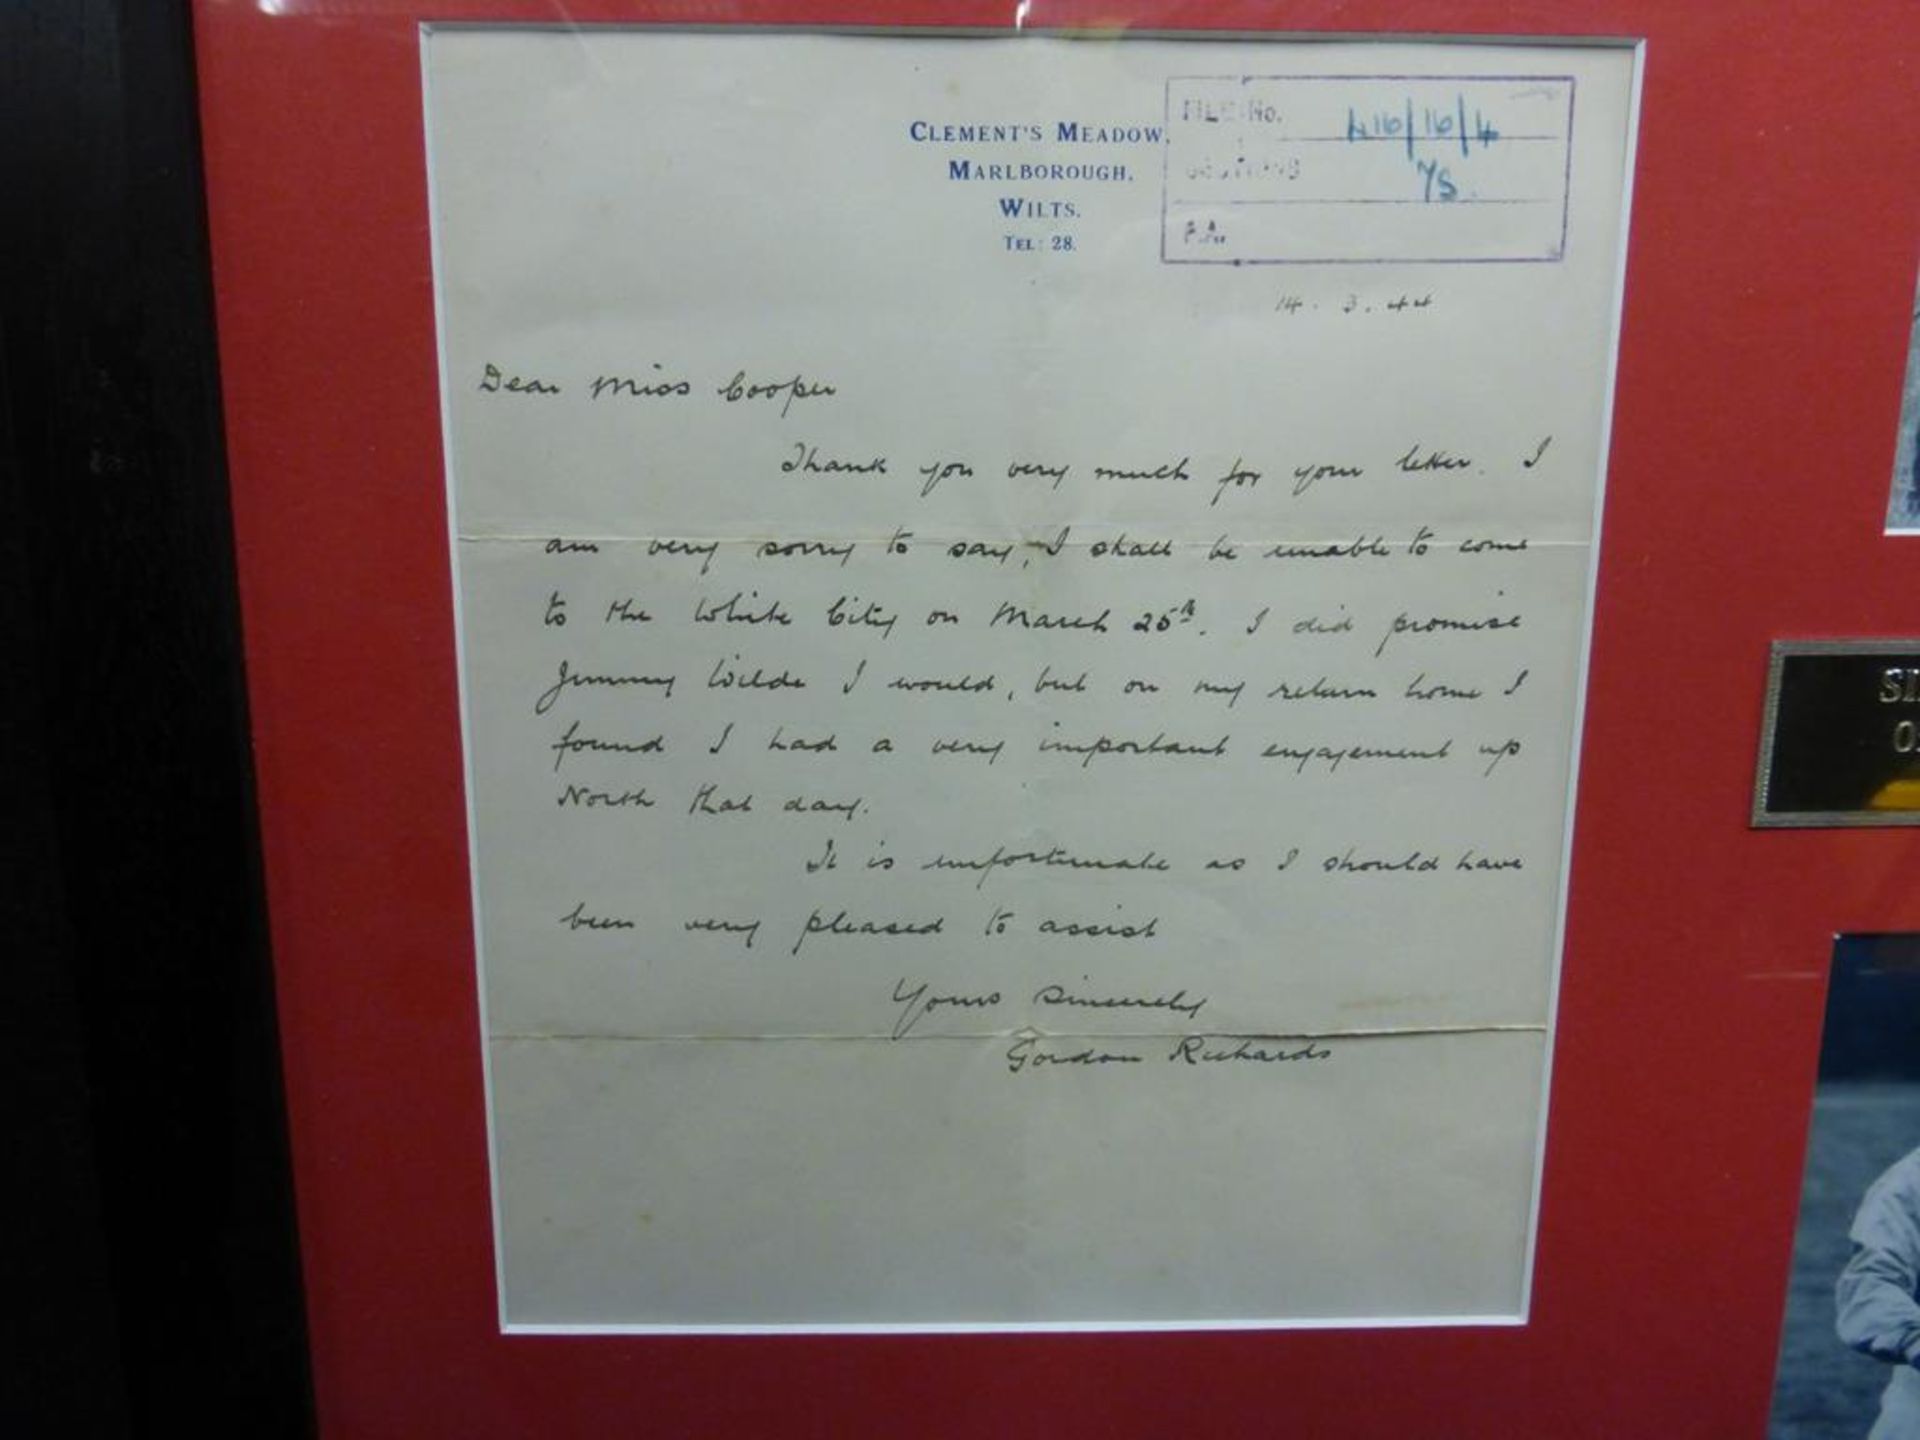 CLEMENT'S MEADOW,
MARLBOROUGH,
WILTS.
TEL: 28.
FILE No. 416/16/4
SECTIONS YS.
P.A.
14. 3. 44
Dear Miss Cooper
Thank you very much for your letter. I
am very sorry to say, I shall be unable to come
to the White City on March 25th. I did promise
Jimmy Wilde I would, but on my return home I
found I had a very important engagement up
North that day.
It is unfortunate as I should have
been very pleased to assist
Yours Sincerely
Gordon Richards